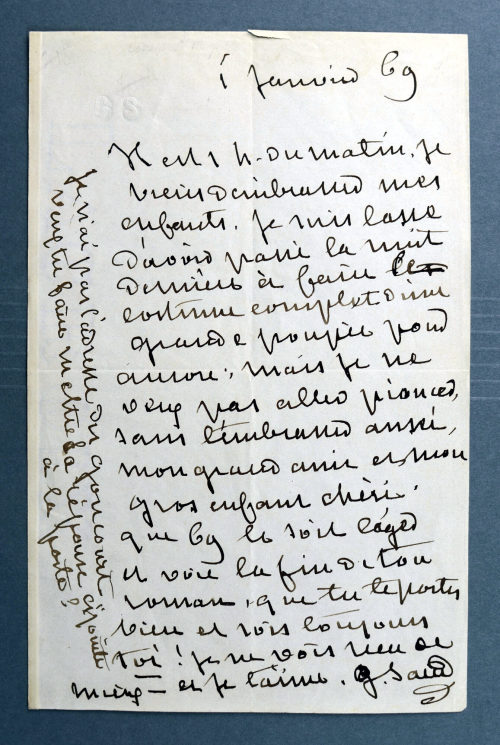 1 Janvier 69
Il est 1 h. du matin, je
viens d'embrasser mes
enfants. je suis lasse
d'avoir passé la nuit
dernière à faire le
costume complet d'une
grande poupée pour
aurore; mais je ne
veux pas aller pioncer,
sans t'embrasser aussi,
mon grand ami et mon
gros enfant chéri.
que 69 te soit léger
et voie la fin de ton
roman, que tu te portes
bien et sois toujours
toi! je ne vois rien de
mieux — et je t'aime. G. Sand
je n'ai pas l'adresse du goncourt
veux tu faire mettre la réponse ci jointe
à la poste?